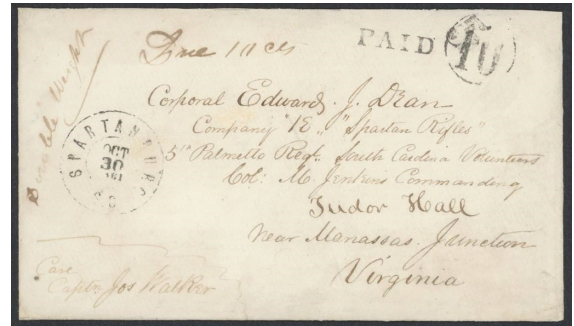 Due 10 cts
PAID
10
Double Weight
Corporal Edward J. Dean
Company "E" "Spartan Rifles"
5th Palmetto Regt. South Carolina Volunteers
Col: M. Jenkins Commanding
Tudor Hall
near Manassas Junction
Virginia
SPARTANBURG
OCT
30
Care
Captn Jos Walker